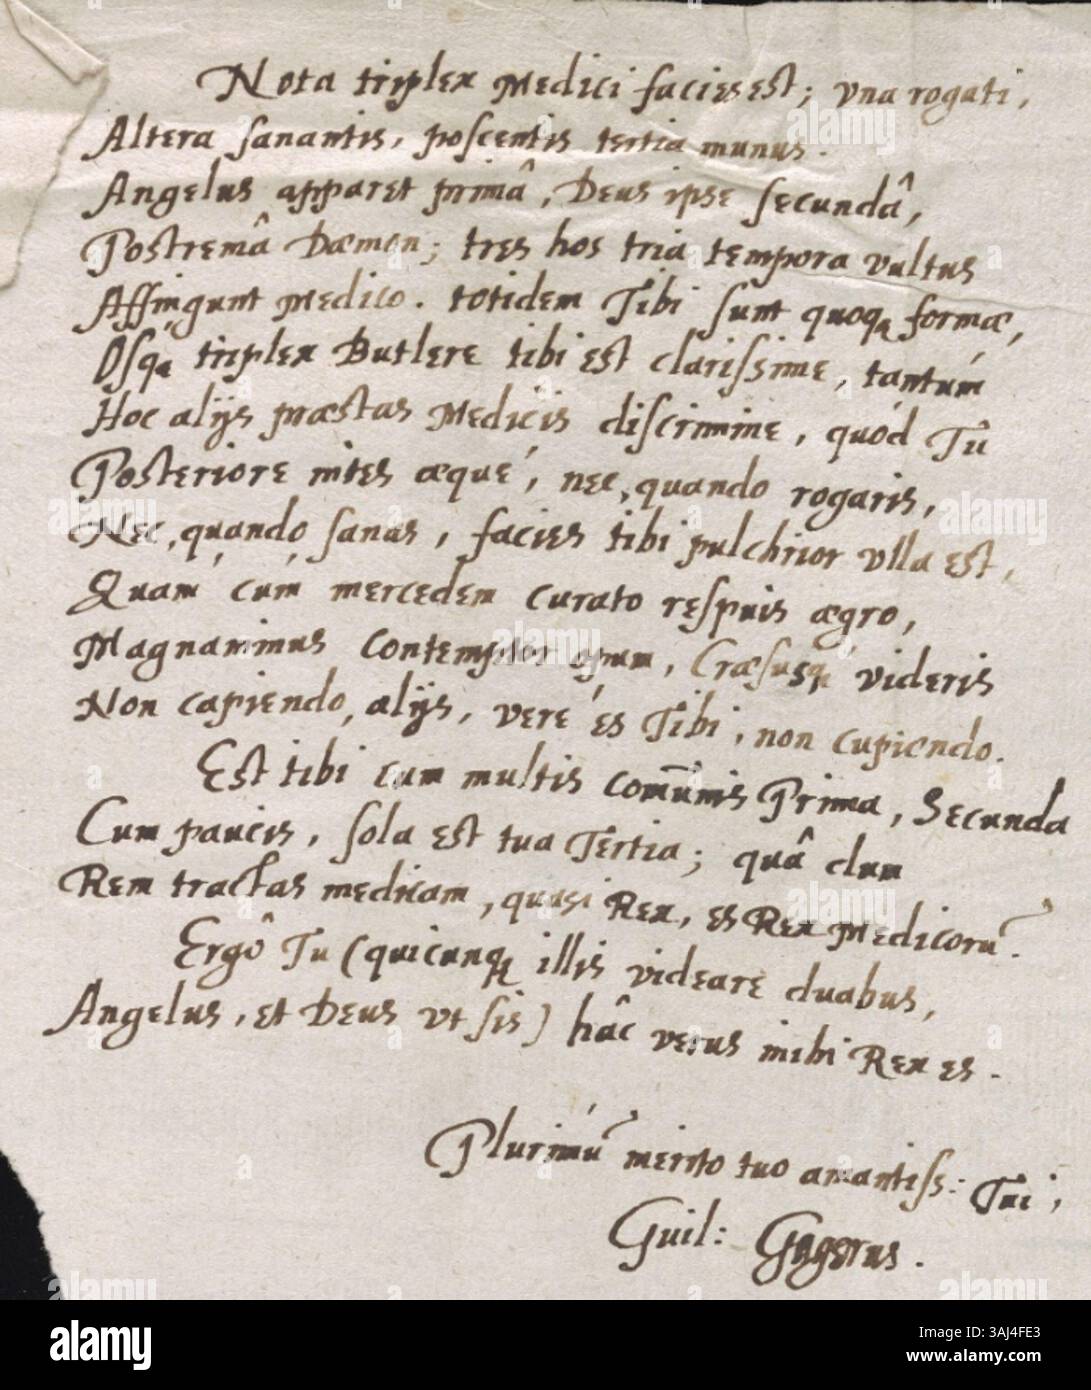 Nota triplex Medici facies est; vna rogati,
Altera sanantis, poscentis tertia munus.
Angelus apparet primâ, Deus ipse secundâ,
Postremâ Dæmon; tres hos tria tempora vultus
Affingunt Medico. totidem Tibi sunt quoq formæ,
Osq triplex Butlere tibi est clarissime, tantúm
Hoc alijs præstas Medicis discrimine, quód Tû
Posteriore nites æqué, nec, quando rogaris,
Nec, quando sanas, facies tibi pulchrior vlla est,
Quam cúm mercedem curato respuis ægro,
Magnanimus contemptor opum, Cræsusq videris
Non capiendo, alijs, veré es Tibi, non cupiendo.
Est tibi cum multis comũnis Prima, Secunda
Cum paucis, sola est tua Tertia; quâ dum
Rem tractas medicam, quasi Rex, es Rex Medicorũ.
Ergô Tu (quicunq illis videare duabus,
Angelus, et Deus vt sis) hâc verus mihi Rex es.
Plurimũ merito tuo amantiss: Tui,
Guil: Gagerus.
alamy
2AJ4FE3
www.alamy.com